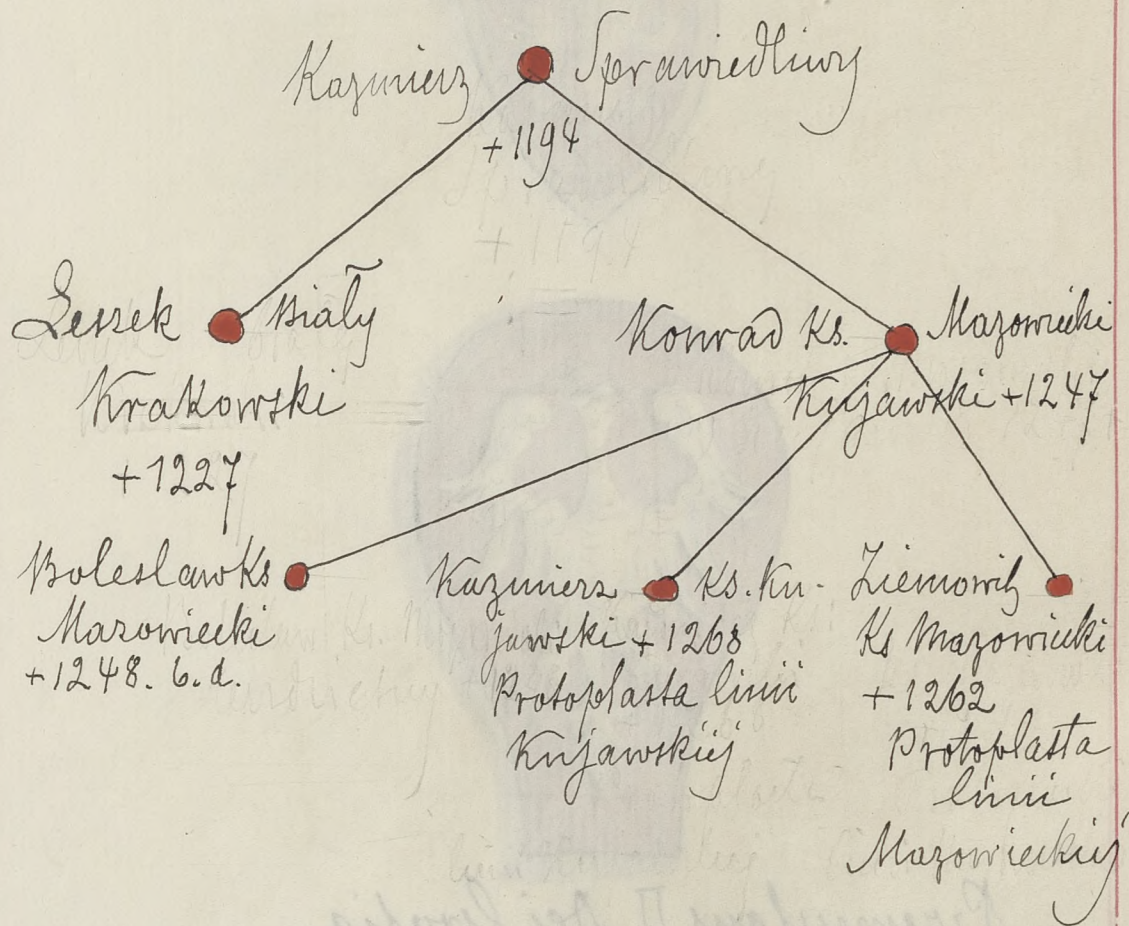 Kazmierz Sprawiedliwy
+1194
Leszek Biały
Krakowski
+1227
Konrad Ks. Mazowiecki
Kujawski +1247
Boleslaw Ks
Mazowiecki
+1248. b.d.
Kazmierz Ks. Ku-
jawski +1268
Protoplasta linii
Kujawskiej
Ziemowit
Ks Mazowiecki
+1262
Protoplasta
linii
Mazowieckiej